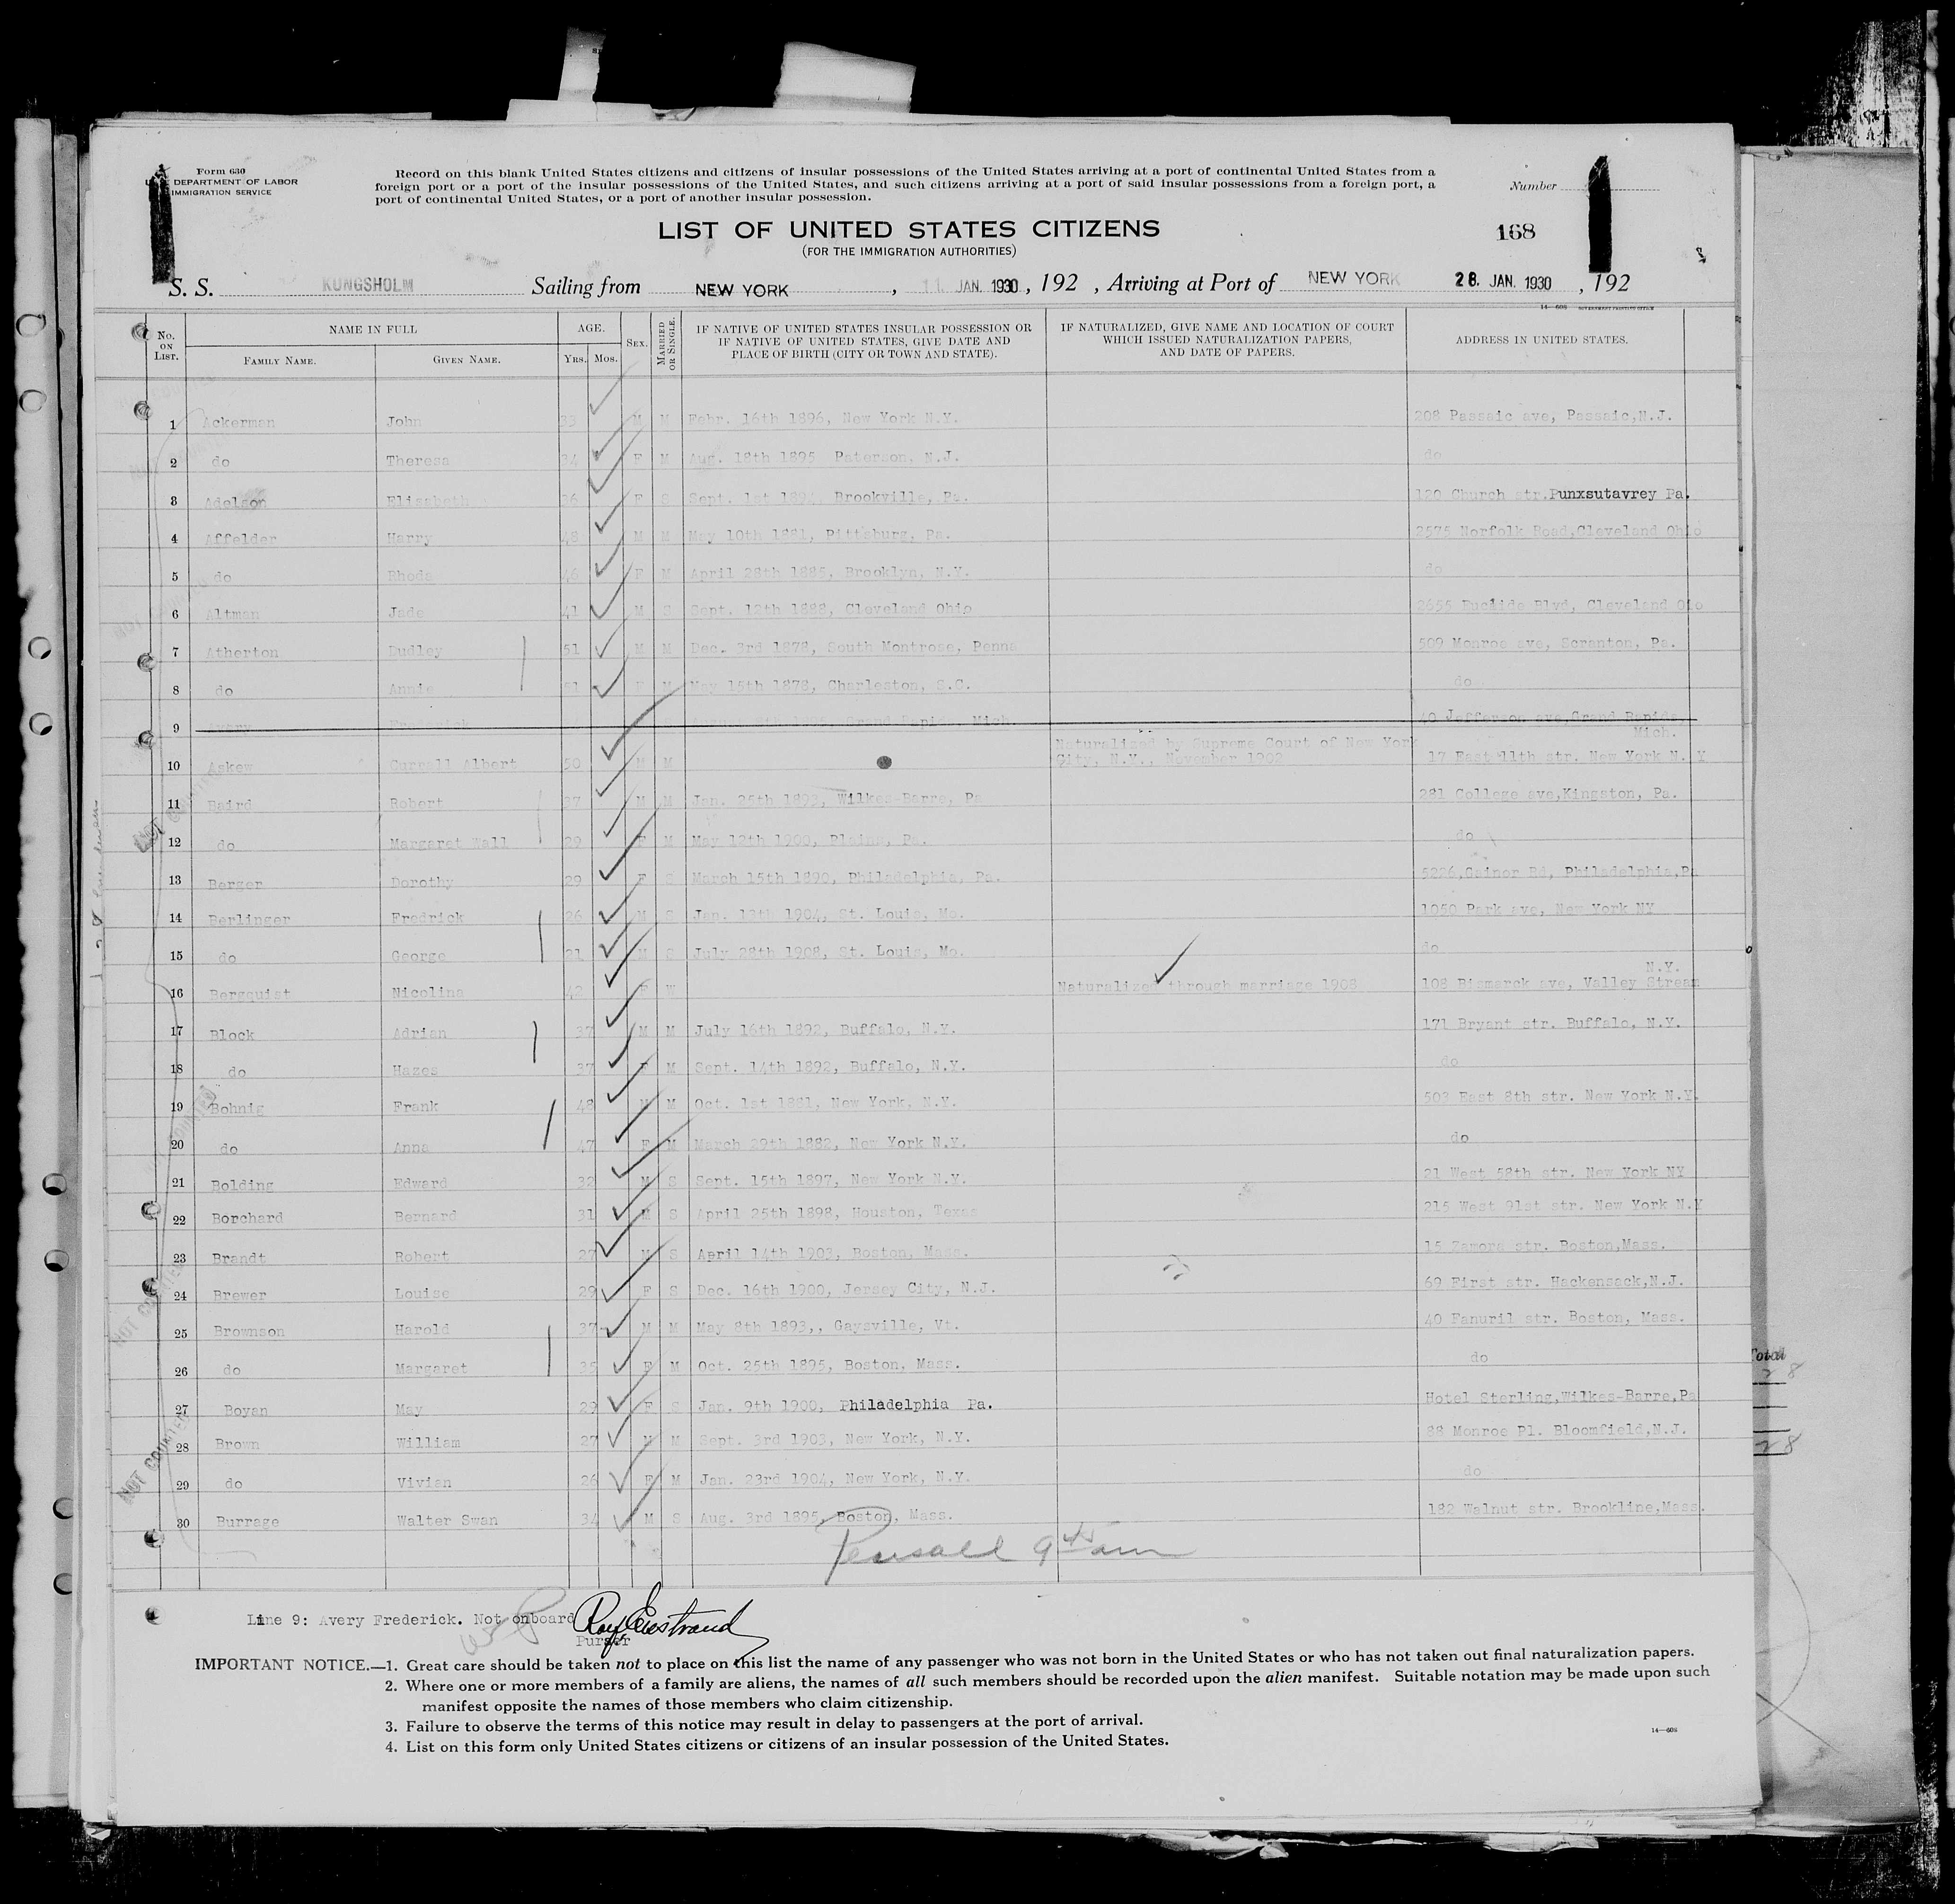 Form 630
DEPARTMENT OF LABOR
IMMIGRATION SERVICE
Record on this blank United States citizens and citizens of insular possessions of the United States arriving at a port of continental United States from a
foreign port or a port of the insular possessions of the United States, and such citizens arriving at a port of said insular possessions from a foreign port, a
port of continental United States, or a port of another insular possession.
Number
LIST OF UNITED STATES CITIZENS
(FOR THE IMMIGRATION AUTHORITIES)
168
S. S. KUNGSHOLM Sailing from NEW YORK, 11 JAN. 1930, 192 , Arriving at Port of NEW YORK 28. JAN. 1930, 192
14—608 GOVERNMENT PRINTING OFFICE
No. ON LIST.
NAME IN FULL
FAMILY NAME.
GIVEN NAME.
AGE.
YRS. MOS.
SEX.
MARRIED OR SINGLE.
IF NATIVE OF UNITED STATES INSULAR POSSESSION OR
IF NATIVE OF UNITED STATES, GIVE DATE AND
PLACE OF BIRTH (CITY OR TOWN AND STATE).
IF NATURALIZED, GIVE NAME AND LOCATION OF COURT
WHICH ISSUED NATURALIZATION PAPERS,
AND DATE OF PAPERS.
ADDRESS IN UNITED STATES.
1 Ackerman John 33 M M Febr. 16th 1896, New York N.Y. 208 Passaic ave, Passaic,N.J.
2 do Theresa 34 F M Aug. 18th 1895 Paterson, N.J. do
3 Adelson Elisabeth 36 F S Sept. 1st Brookville, Pa. 120 Church str.Punxsutavrey Pa.
4 Affelder Harry 48 M M May 10th 1881, Pittsburg, Pa. 2575 Norfolk Road,Cleveland Ohio
5 do Rhoda 46 F M April 28th 1885, Brooklyn, N.Y. do
6 Altman Jade 41 M S Sept. 12th 1888, Cleveland Ohio 2655 Euclide Blvd, Cleveland O
7 Atherton Dudley 51 M M Dec. 3rd 1878, South Montrose, Penna 509 Monroe ave, Scranton, Pa.
8 do Annie 51 F M May 15th 1878, Charleston, S.C. do
9 Avery Frederick Grand Rapids, Mich. 40 Jefferson ave,Grand Rapids,
Mich.
10 Askew Currall Albert 50 M M Naturalized by Supreme Court of New York
City, N.Y., November 1902 17 East 11th str. New York N.Y
11 Baird Robert 37 M M Jan. 25th 1892, Wilkes-Barre, Pa 281 College ave,Kingston, Pa.
12 do Margaret Wall 29 F M May 12th 1900, Plains, Pa. do
13 Berger Dorothy 29 F S March 15th 1890, Philadelphia, Pa. 5226,Gainor Rd, Philadelphia,Pa
14 Berlinger Fredrick 26 M S Jan. 13th 1904, St. Louis, Mo. 1050 Park ave, New York NY
15 do George 21 M S July 28th 1908, St. Louis, Mo. do
N.Y.
16 Bergquist Nicolina 42 F W Naturalized through marriage 1908 108 Bismarck ave, Valley Stream
17 Block Adrian 37 M M July 16th 1892, Buffalo, N.Y. 171 Bryant str. Buffalo, N.Y.
18 do Hazes 37 F M Sept. 14th 1892, Buffalo, N.Y. do
19 Bohnig Frank 48 M M Oct. 1st 1881, New York, N.Y. 503 East 8th str. New York N.Y.
20 do Anna 47 F M March 29th 1882, New York N.Y. do
21 Bolding Edward 32 M S Sept. 15th 1897, New York N.Y. 21 West 58th str. New York NY
22 Borchard Bernard 31 M S April 25th 1898, Houston, Texas 215 West 91st str. New York N.Y
23 Brandt Robert 27 M S April 14th 1903, Boston, Mass. 15 Zamora str. Boston,Mass.
24 Brewer Louise 29 F S Dec. 16th 1900, Jersey City, N.J. 69 First str. Hackensack,N.J.
25 Brownson Harold 37 M M May 8th 1893,, Gaysville, Vt. 40 Fanuril str. Boston, Mass.
26 do Margaret 35 F M Oct. 25th 1895, Boston, Mass. do
27 Boyan May 29 F S Jan. 9th 1900, Philadelphia Pa. Hotel Sterling,Wilkes-Barre,Pa
28 Brown William 27 M M Sept. 3rd 1903, New York, N.Y. 88 Monroe Pl. Bloomfield,N.J.
29 do Vivian 26 F M Jan. 23rd 1904, New York, N.Y. do
30 Burrage Walter Swan 34 M S Aug. 3rd 1895, Boston, Mass. 182 Walnut str. Brookline,Mass.
NOT COUNTED
NOT COUNTED
Total
28
28
9 45 am
Line 9: Avery Frederick. Not onboard
Purser
IMPORTANT NOTICE.—1. Great care should be taken not to place on this list the name of any passenger who was not born in the United States or who has not taken out final naturalization papers.
2. Where one or more members of a family are aliens, the names of all such members should be recorded upon the alien manifest. Suitable notation may be made upon such
manifest opposite the names of those members who claim citizenship.
3. Failure to observe the terms of this notice may result in delay to passengers at the port of arrival.
4. List on this form only United States citizens or citizens of an insular possession of the United States.
14—608